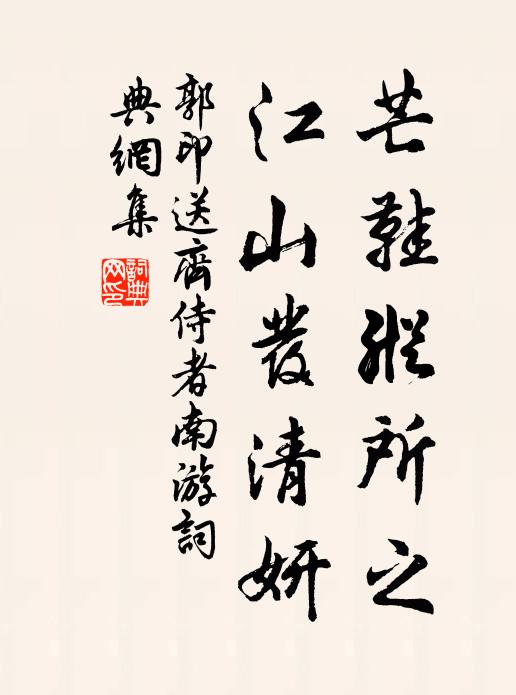 芒鞋縱所之
江山發清妍
郭印送齊侍者南游詞
典網集
詞典網印